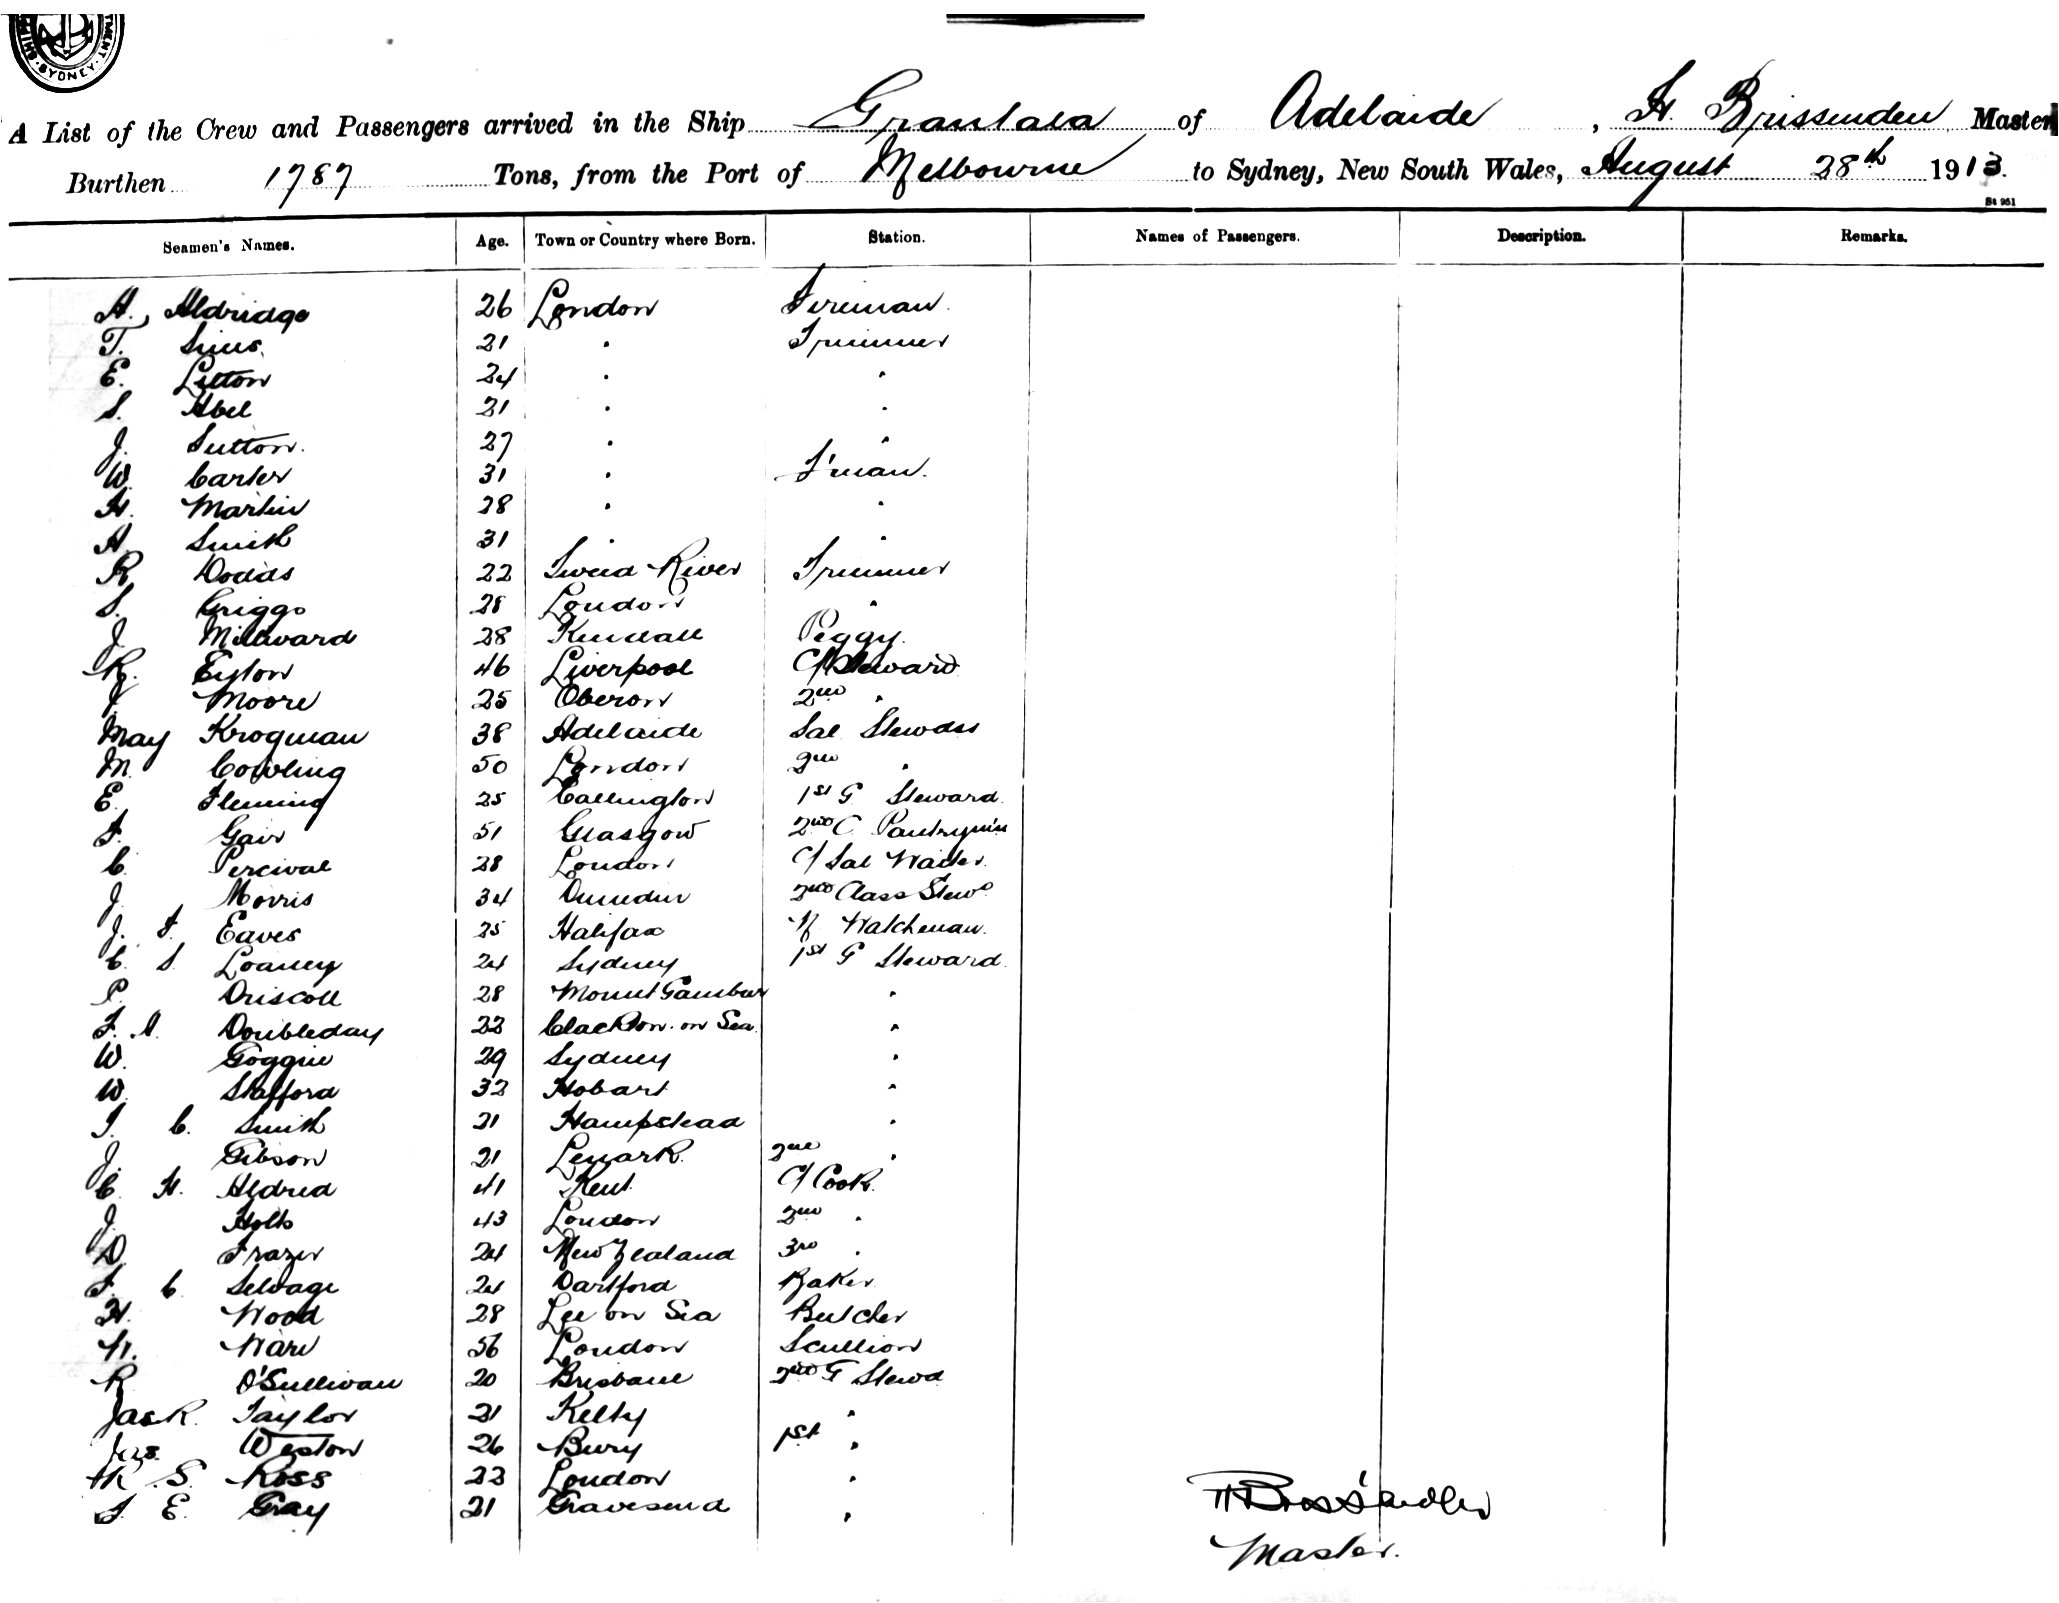 SYDNEY
A List of the Crew and Passengers arrived in the Ship Grantala of Adelaide, H. Brissenden Master
Burthen 1787 Tons, from the Port of Melbourne to Sydney, New South Wales, August 28th 1913.
St 951
Seamen's Names. Age. Town or Country where Born. Station. Names of Passengers. Description. Remarks.
A. Aldridge 26 London Fireman.
T. Sims 21 " Trimmer
E. Litton 24 " "
S. Abel 21 " "
J. Sutton. 27 " "
W. Carter 31 " F'man.
H. Martin 28 " "
A. Smith 31 " "
R. Dodds 22 Tweed River Trimmer
S. Griggs 28 London "
J. Millward 28 Kendall Peggy.
R. Eyton 46 Liverpool C/Steward
J. Moore 25 Oberon 2nd "
May Krogman 38 Adelaide Sal Stewdss
M. Cowling 50 London 2nd "
E. Fleming 25 Callington 1st G Steward.
F. Gair 51 Glasgow 2nd C. Pantryman
C. Percival 28 London C/ Sal Waiter.
J. Morris 34 Dunedin 2nd Class Stewd
J. F. Eaves 25 Halifax N Watchman.
C. S. Loaney 24 Sydney 1st G Steward.
P. Driscoll 28 Mount Gambier "
F. A. Doubleday 22 Clackton on Sea. "
W. Goggin 29 Sydney "
W. Stafford 32 Hobart "
T. C. Smith 21 Hampstead "
J. Gibson 21 Lenark. 2nd "
C. H. Aldred 41 Kent. C/ Cook.
J. Holts 43 London 2nd "
D. Frazer 24 New Zealand 3rd "
F. C. Selvage 24 Dartford Baker
H. Wood 28 Lee on Sea Butcher
W. Ware 56 London Scullion
R O'Sullivan 20 Brisbane 2nd G Stewd
Jas R. Taylor 21 Kelty "
Jas. Weston 26 Bury 1st "
R. S. Ross 22 London "
S. E. Gray 21 Gravesend "
H Brissenden
Master.